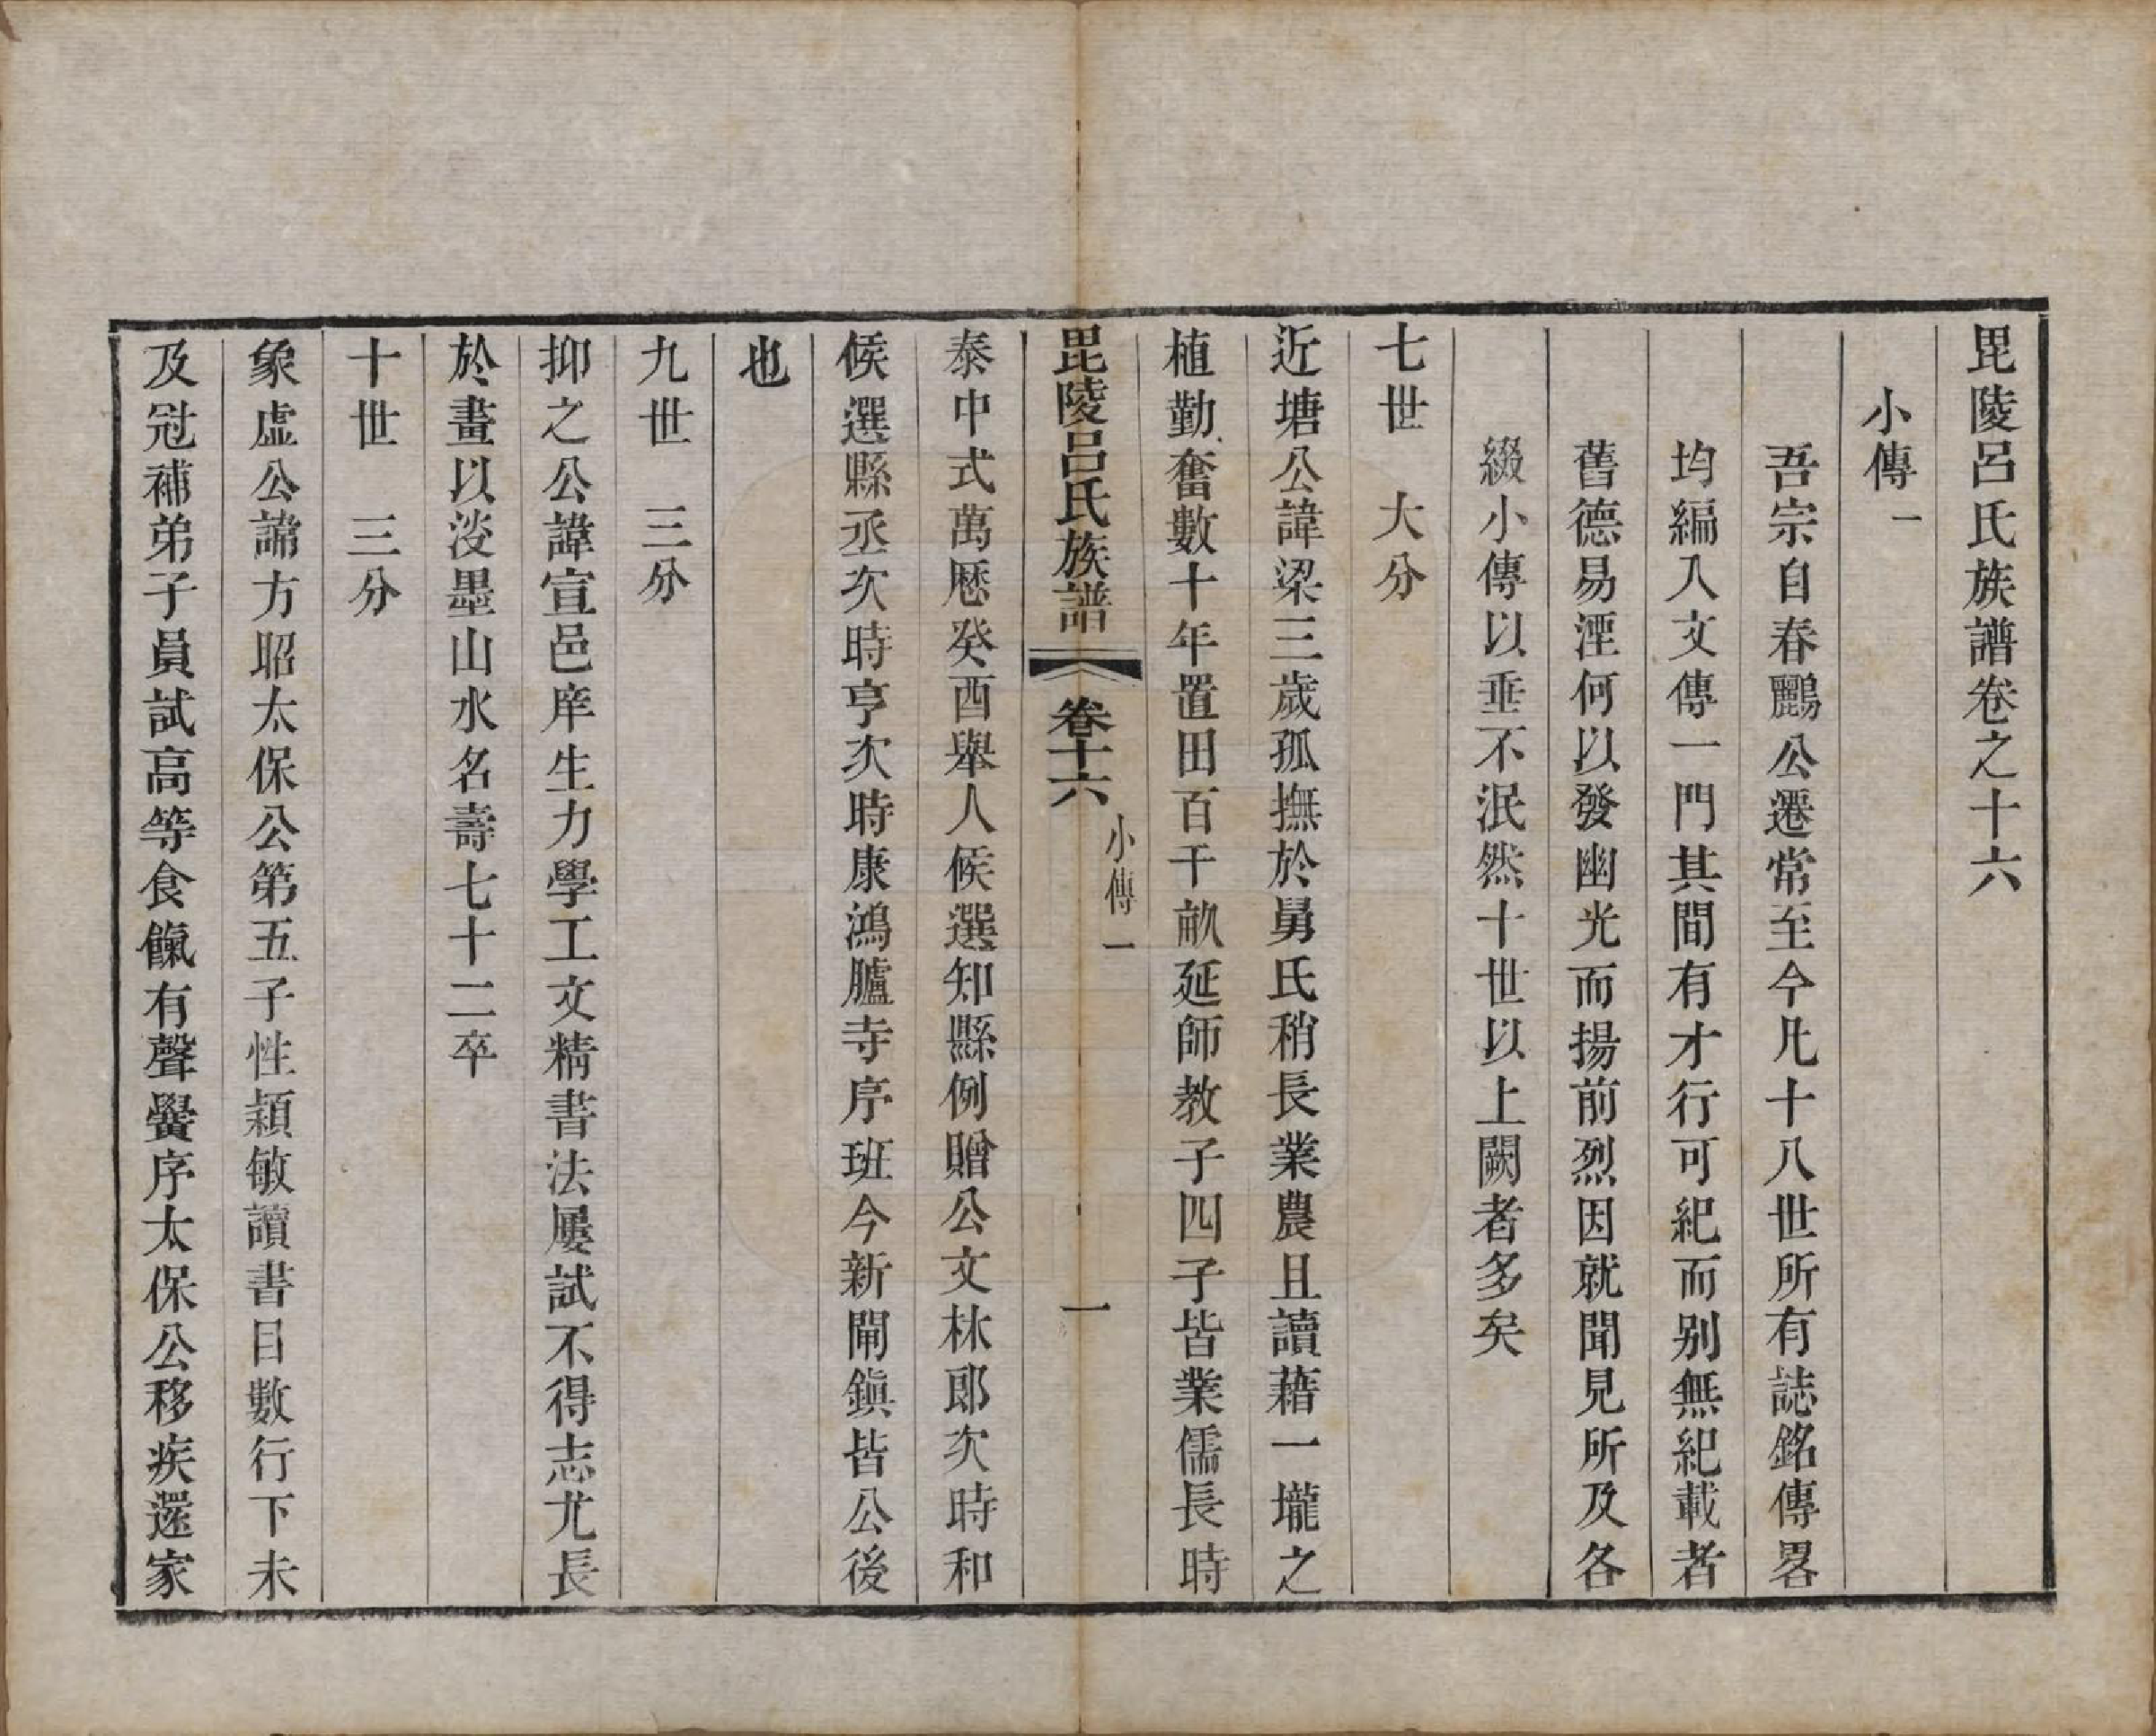 毘陵呂氏族譜卷之十六
小傳一
吾宗自春鸝公遷常至今凡十八世所有誌銘傳畧
均編入文傳一門其間有才行可紀而别無紀載者
舊德易湮何以發幽光而揚前烈因就聞見所及各
綴小傳以垂不泯然十世以上闕者多矣
七世　大分
近塘公諱梁三歲孤撫於舅氏稍長業農且讀藉一壠之
植勤奮數十年置田百干畝延師教子四子皆業儒長時
毘陵呂氏族譜　卷十六　小傳一　一
泰中式萬厯癸酉舉人候選知縣例贈公文林郎次時和
候選縣丞次時亨次時康鴻臚寺序班今新閘鎮皆公後
也
九世　三分
抑之公諱宣邑庠生力學工文精書法屢試不得志尤長
於畫以淡墨山水名壽七十二卒
十世　三分
象虛公諱方昭太保公第五子性穎敏讀書目數行下未
及冠補弟子員試高等食餼有聲黌序太保公移疾還家